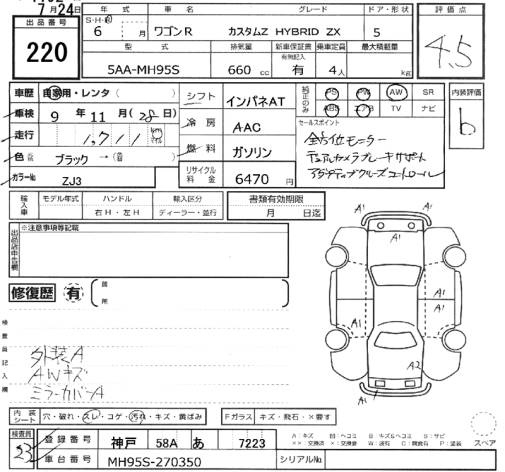 7月24日
出品番号
220
年式 車名 グレード ドア・形状
S・H・R
6 月 ワゴンR カスタムZ HYBRID ZX 5
型式 排気量 新車保証書 乗車定員 最大積載量
有無記入
5AA-MH95S 660 cc 有 4人 kg
評価点
4.5
車歴 自家用・レンタ( )
車検 9年 11月(28日)
走行 1,711 km
色 ブラック→( )
カラーNo. ZJ3
シフト インパネAT
冷房 AAC
燃料 ガソリン
リサイクル料金 6470円
純正のみ PS PW AW SR
ABS エアB TV ナビ
セールスポイント
全方位モニター
デュアルカメラブレーキサポート
アダプティブクルーズコントロール
内装評価
b
輸入車 モデル年式 ハンドル 輸入区分
右H・左H ディーラー・並行
書類有効期限
月 日迄
出品店申告欄
※注意事項等記載
修復歴 有
箇所
検査員記入欄
外装A
AWキズ
ミラーカバーA
A1 A1
A1
A1 A1
A1
A2
A1
内装シート 穴・破れ・スレ・コゲ・汚れ・キズ・黄ばみ
Fガラス キズ・飛石・×要す
スペア
検査員
23
登録番号 神戸 58A あ 7223
車台番号 MH95S-270350
シリアルNo.